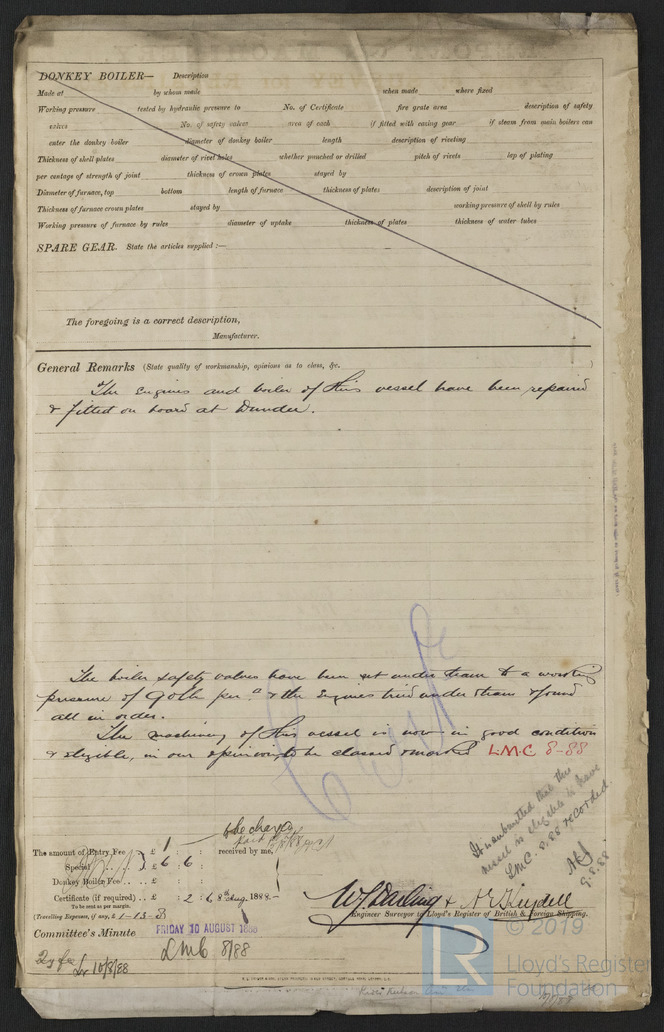 DONKEY BOILER— Description
Made at by whom made when made where fixed
Working pressure tested by hydraulic pressure to No. of Certificate fire grate area description of safety
valves No. of safety valves area of each if fitted with easing gear if steam from main boilers can
enter the donkey boiler diameter of donkey boiler length description of riveting
Thickness of shell plates diameter of rivet holes whether punched or drilled pitch of rivets lap of plating
per centage of strength of joint thickness of crown plates stayed by
Diameter of furnace, top bottom length of furnace thickness of plates description of joint
Thickness of furnace crown plates stayed by working pressure of shell by rules
Working pressure of furnace by rules diameter of uptake thickness of plates thickness of water tubes
SPARE GEAR. State the articles supplied :—
The foregoing is a correct description,
Manufacturer.
General Remarks (State quality of workmanship, opinions as to class, &c.
The Engines and boiler of this vessel have been repaired
& fitted on board at Dundee.
The boiler safety valves have been set under steam to a working
pressure of 90 lb per & the Engines tried under steam & found
all in order.
The machinery of this vessel is now in good condition
& eligible, in our opinion, to be classed & marked L.M.C 8-88
It is submitted that this
vessel is eligible to have
L.M.C. 8.88 recorded.
9.8.88
The amount of Entry Fee £ 1 : :
received by me,
Special £ 6 : 6 :
Donkey Boiler Fee £ : :
Certificate (if required) £ : 2 : 6 8th Aug. 1888
To be sent as per margin.
(Travelling Expenses, if any, £ 1-13-8
W. J. Darling &
Engineer Surveyor to Lloyd's Register of British & Foreign Shipping.
Committee's Minute FRIDAY 10 AUGUST 1888
LMC 8/88
10/8/88
LR © 2019
Lloyd's Register
Foundation